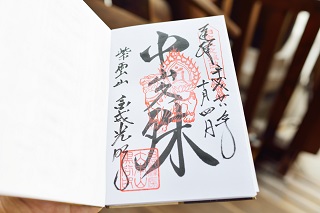 平成廿八年
奉拝 十月四日
中山文殊
紫雲山 金戒光明寺